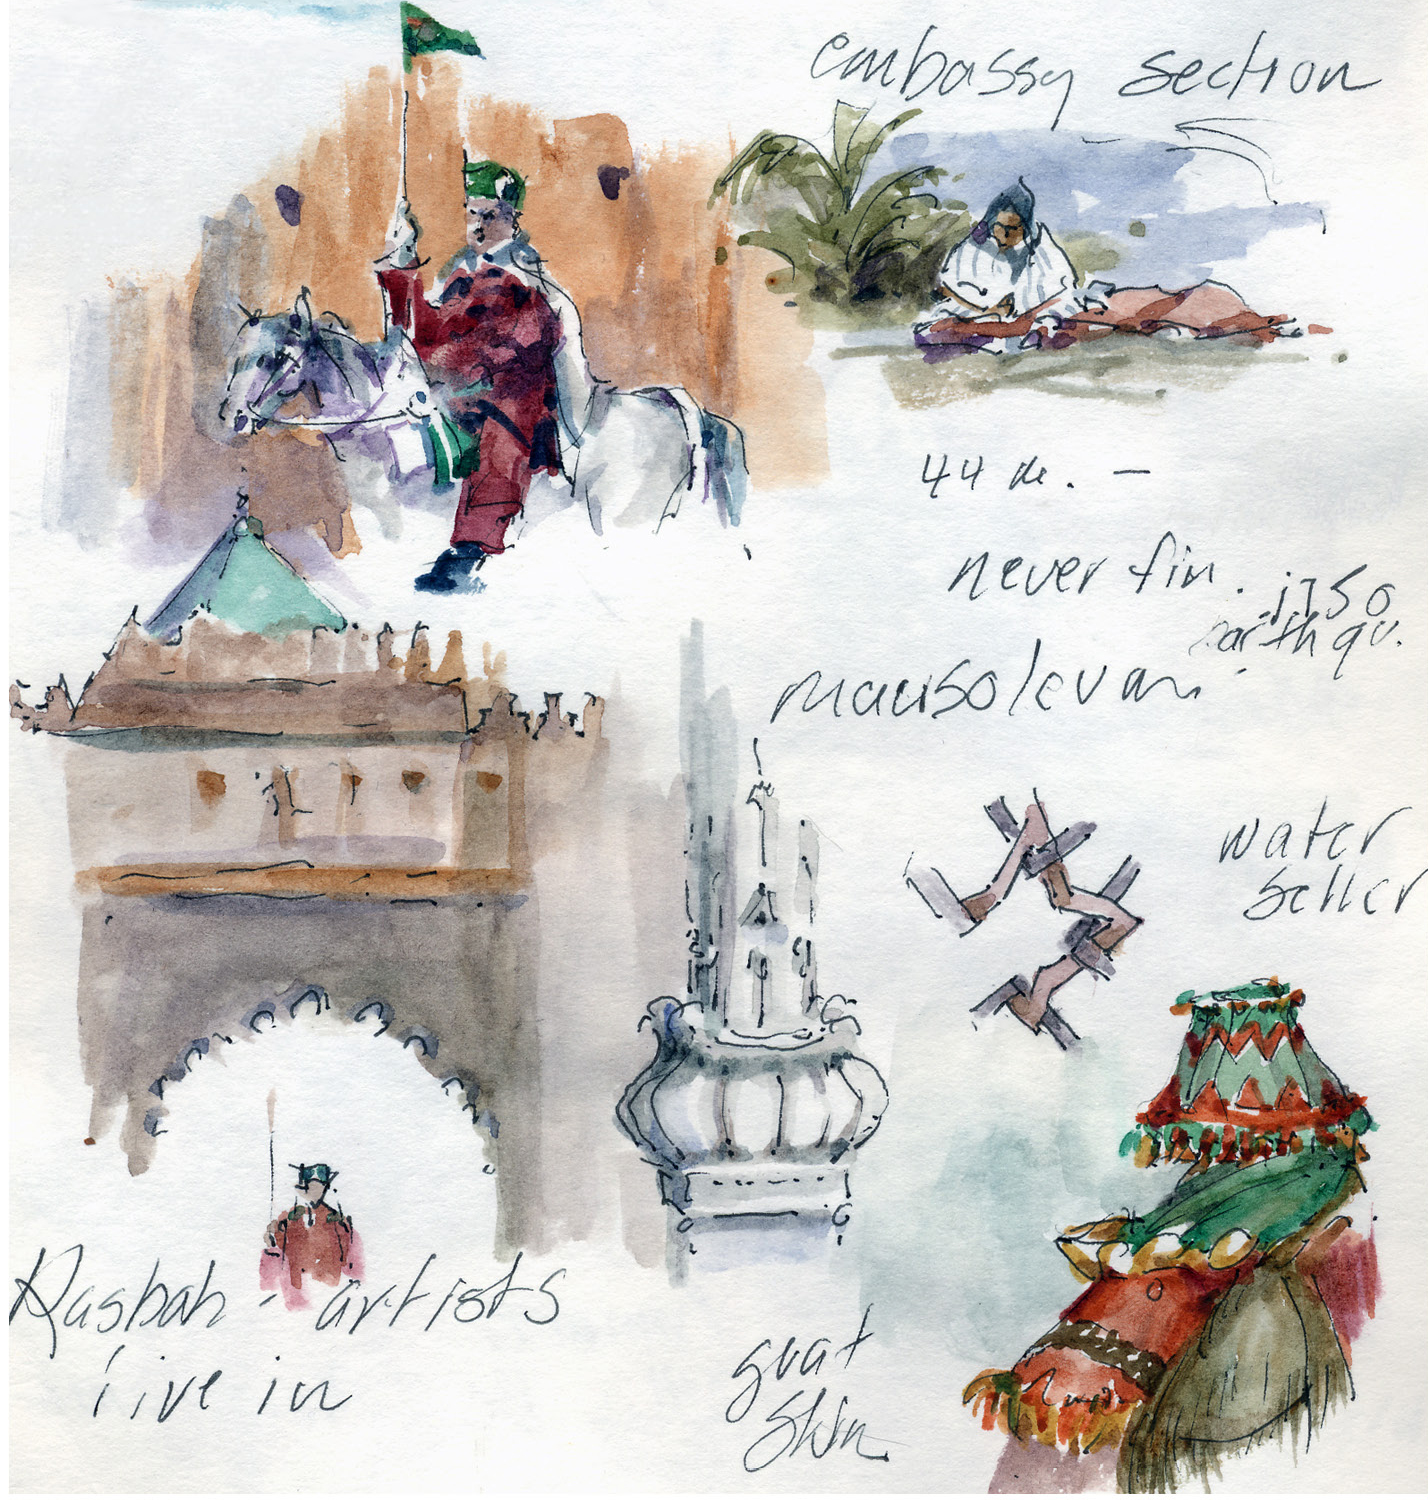 embassy section
44 m. —
never fin.
1750
earthqu.
mausoleum
water
seller
Kasbah - artists
live in
goat
skin